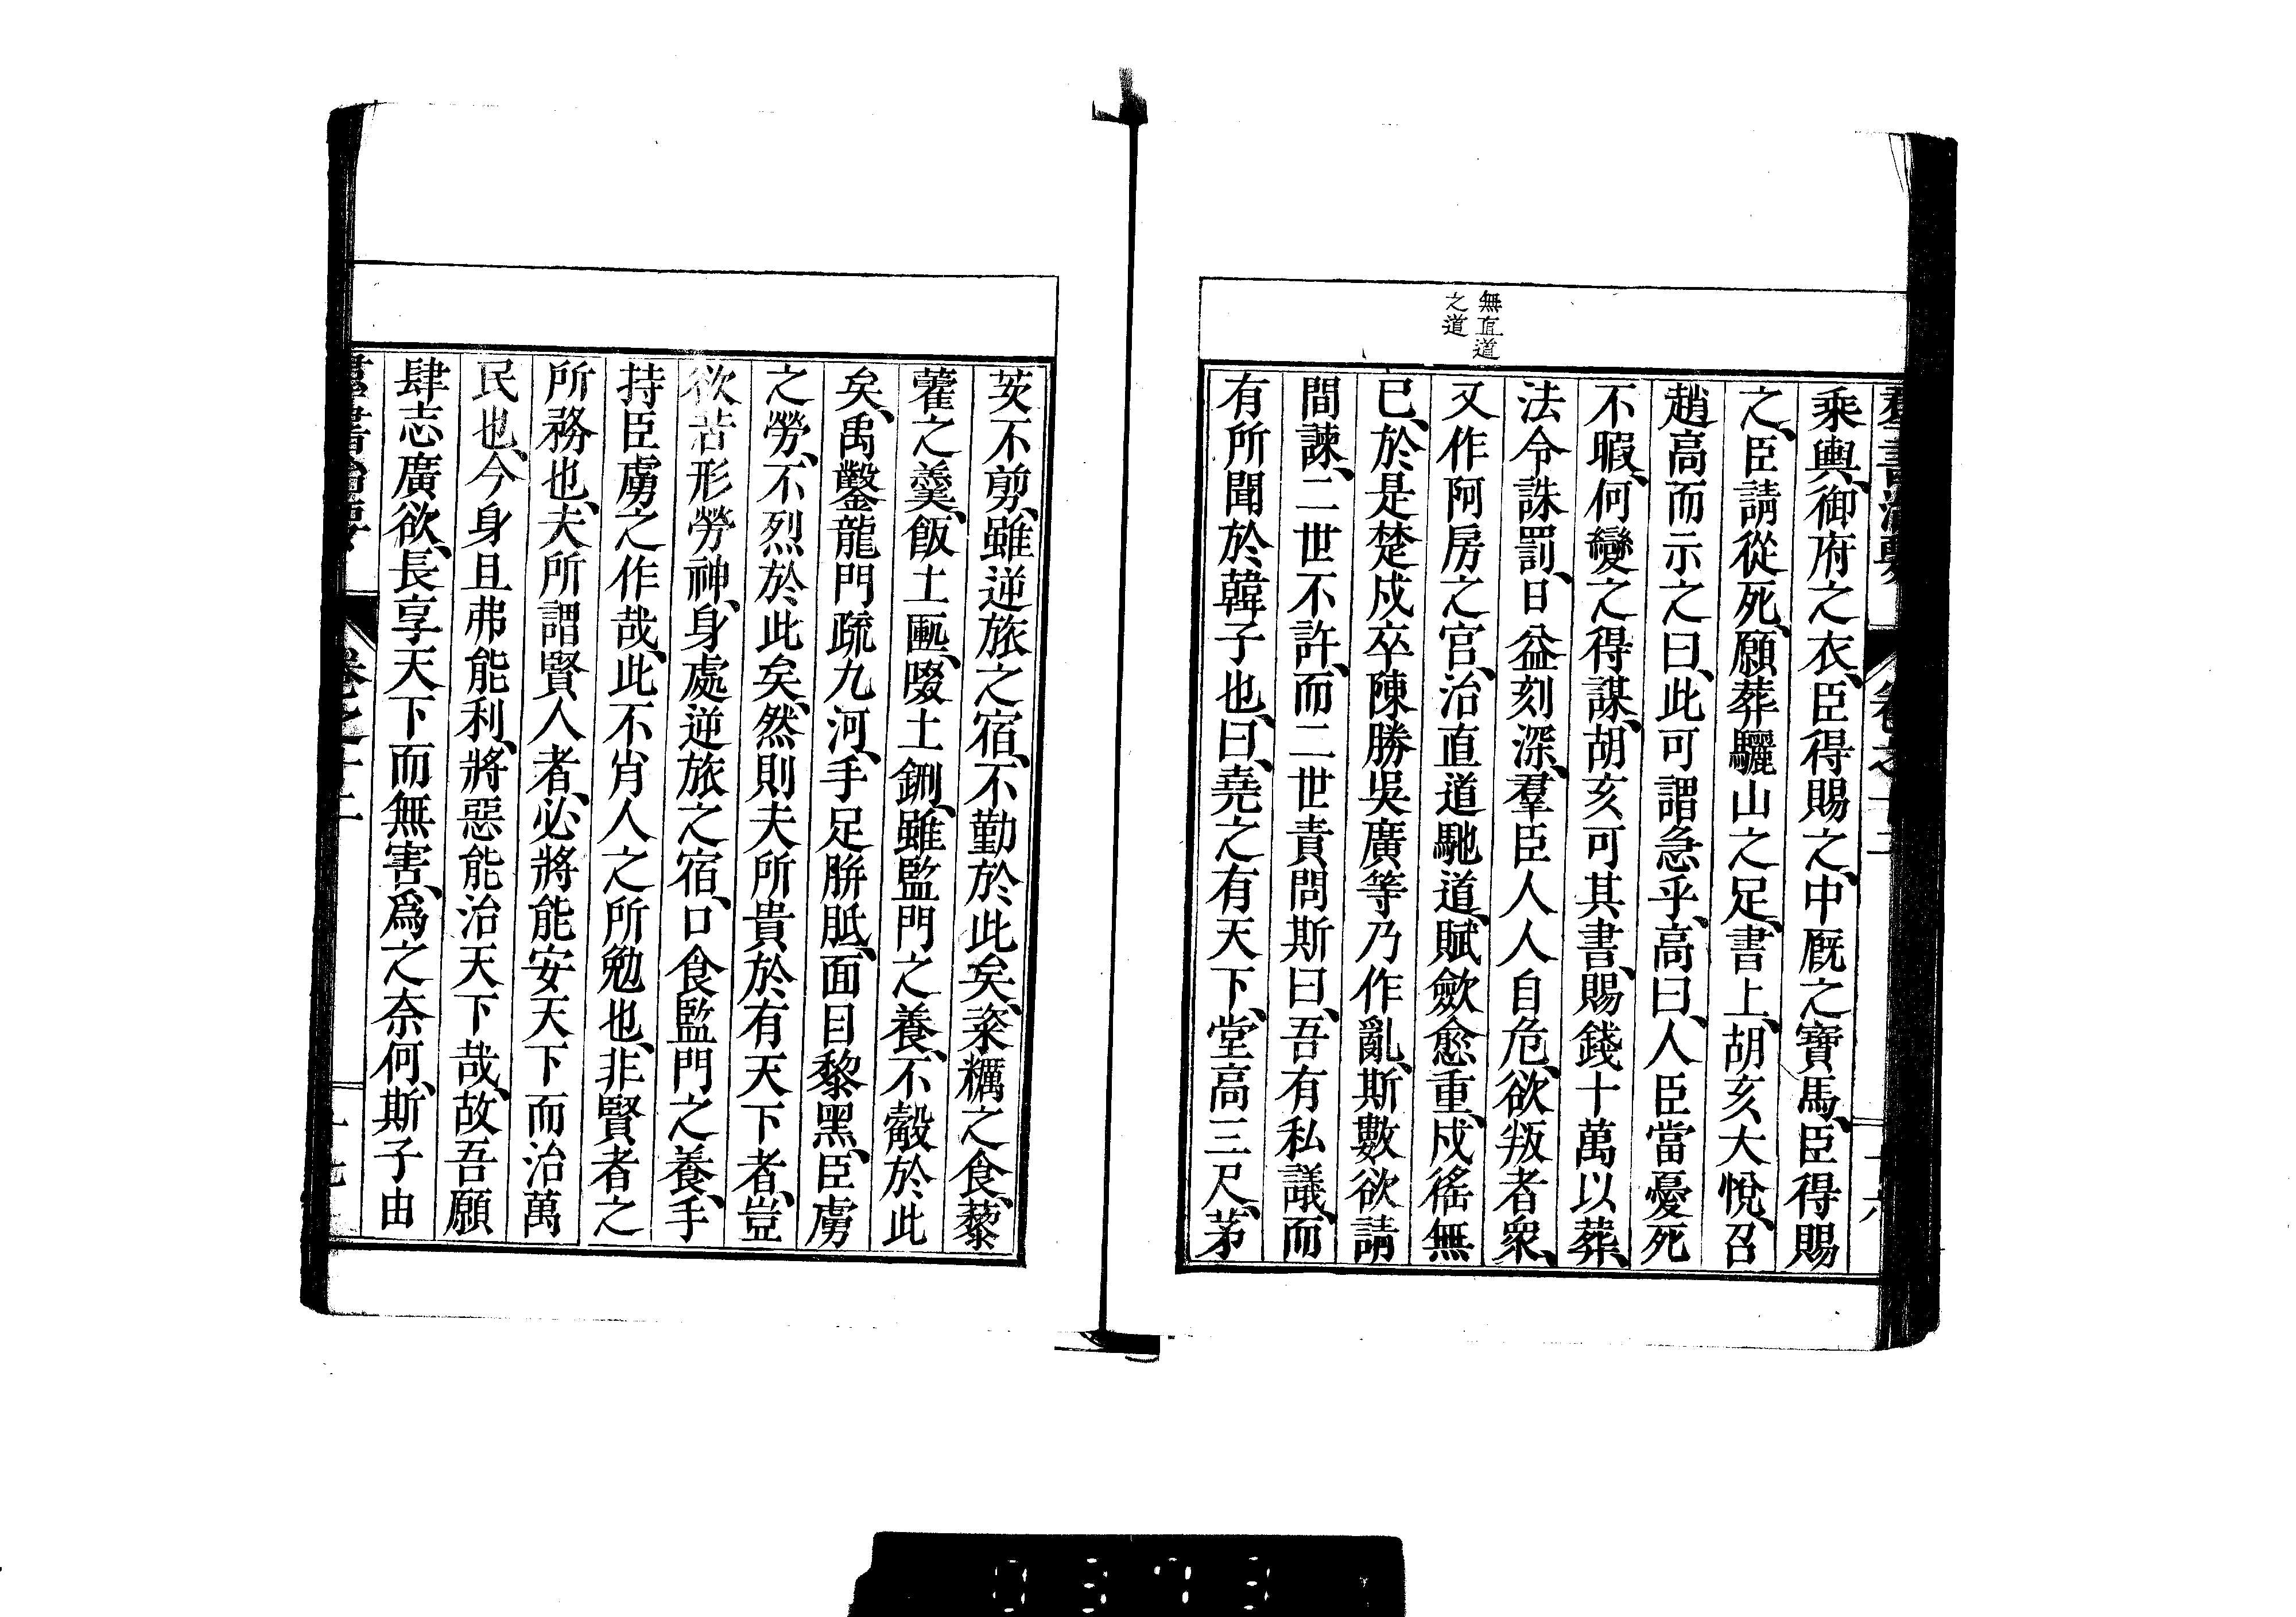 羣書治要
卷之十二
十六
無直道
之道
乘輿、御府之衣、臣得賜之、中厩之寶馬、臣得賜
之、臣請從死、願葬驪山之足、書上、胡亥大悅、召
趙高而示之曰、此可謂急乎、高曰、人臣當憂死
不暇、何變之得謀、胡亥可其書、賜錢十萬以葬、
法令誅罰、日益刻深、羣臣人人自危、欲叛者衆、
又作阿房之宮、治直道馳道、賦歛愈重、戍徭無
已、於是楚戍卒陳勝吳廣等乃作亂、斯數欲請
間諫、二世不許、而二世責問斯曰、吾有私議、而
有所聞於韓子也、曰、堯之有天下、堂高三尺、茅
茨不剪、雖逆旅之宿、不勤於此矣、粢糲之食、藜
藿之羹、飯土匭、啜土鉶、雖監門之養、不觳於此
矣、禹鑿龍門疏九河、手足胼胝、面目黎黑、臣虜
之勞、不烈於此矣、然則夫所貴於有天下者、豈
欲苦形勞神、身處逆旅之宿、口食監門之養、手
持臣虜之作哉、此不肖人之所勉也、非賢者之
所務也、夫所謂賢人者、必將能安天下而治萬
民也、今身且弗能利、將惡能治天下哉、故吾願
肆志廣欲、長享天下而無害、爲之奈何、斯子由
羣書治要
卷之十二
十七